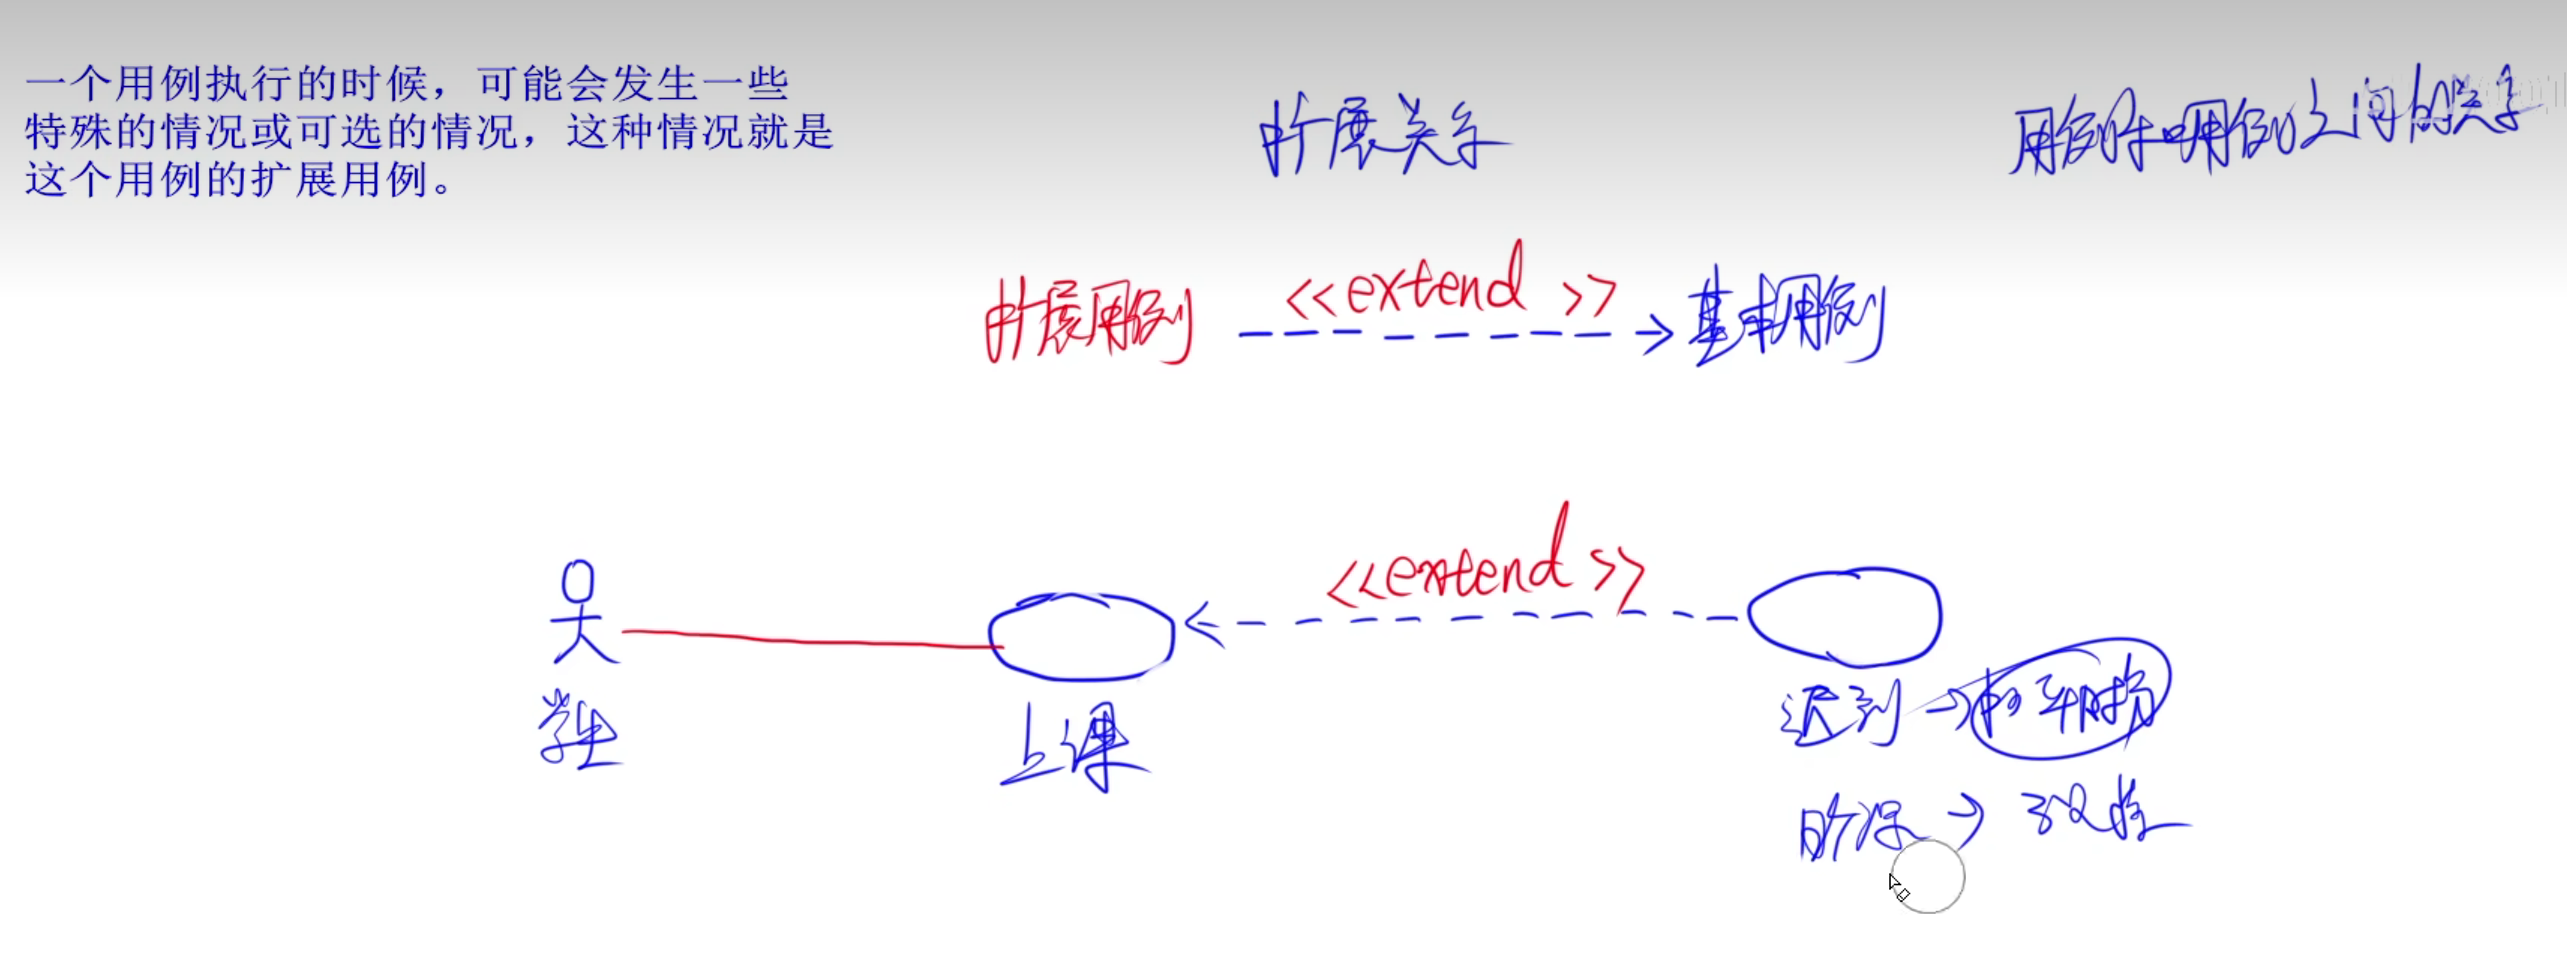 一个用例执行的时候，可能会发生一些
特殊的情况或可选的情况，这种情况就是
这个用例的扩展用例。
扩展关系
用例和用例之间的关系
扩展用例 <<extend>> 基本用例
<<extend>>
学生
上课
迟到 → 扣平时分
→